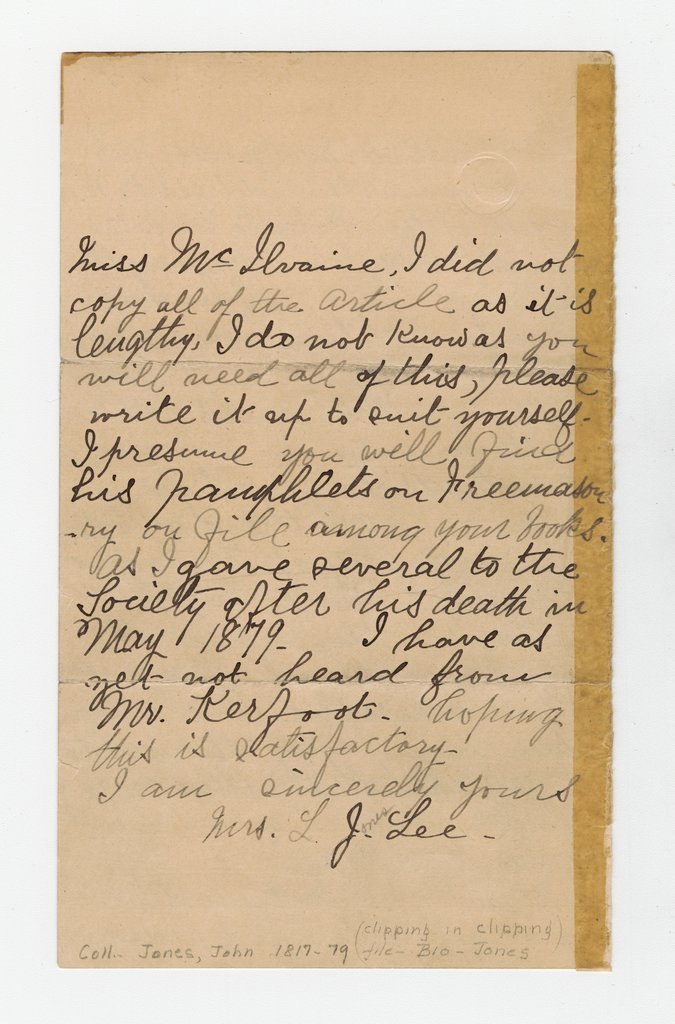 Miss Mc Ilvaine, I did not
copy all of the article as it is
lengthy, I do not know as you
will need all of this, please
write it up to suit yourself-
I presume you will find
his pamphlets on Freemason
-ry on file among your books.
as I gave several to the
Society after his death in
May 1879- I have as
yet not heard from
Mr. Kerfoot- hoping
this is satisfactory-
I am sincerely yours
Mrs. L. Jones J. Lee-
(clipping in clipping)
Coll- Jones, John 1817-79 file- Bio- Jones